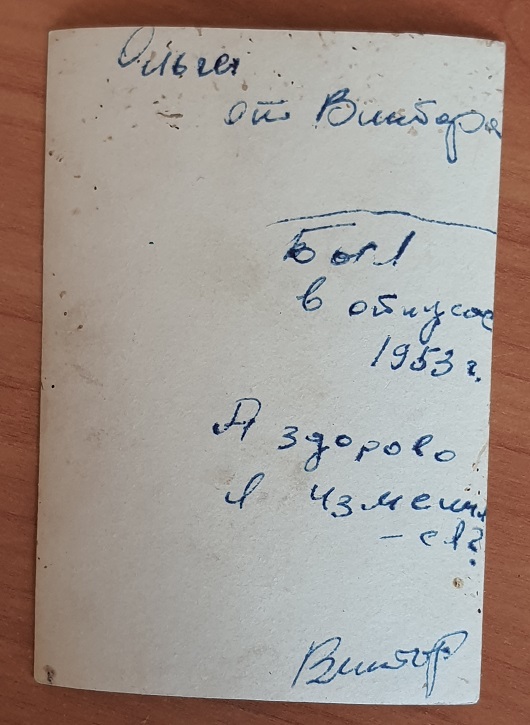 Ольге
от Виктора
Был
в отпуске
1953 г.
А здорово
я изменил
- ся?
Виктор